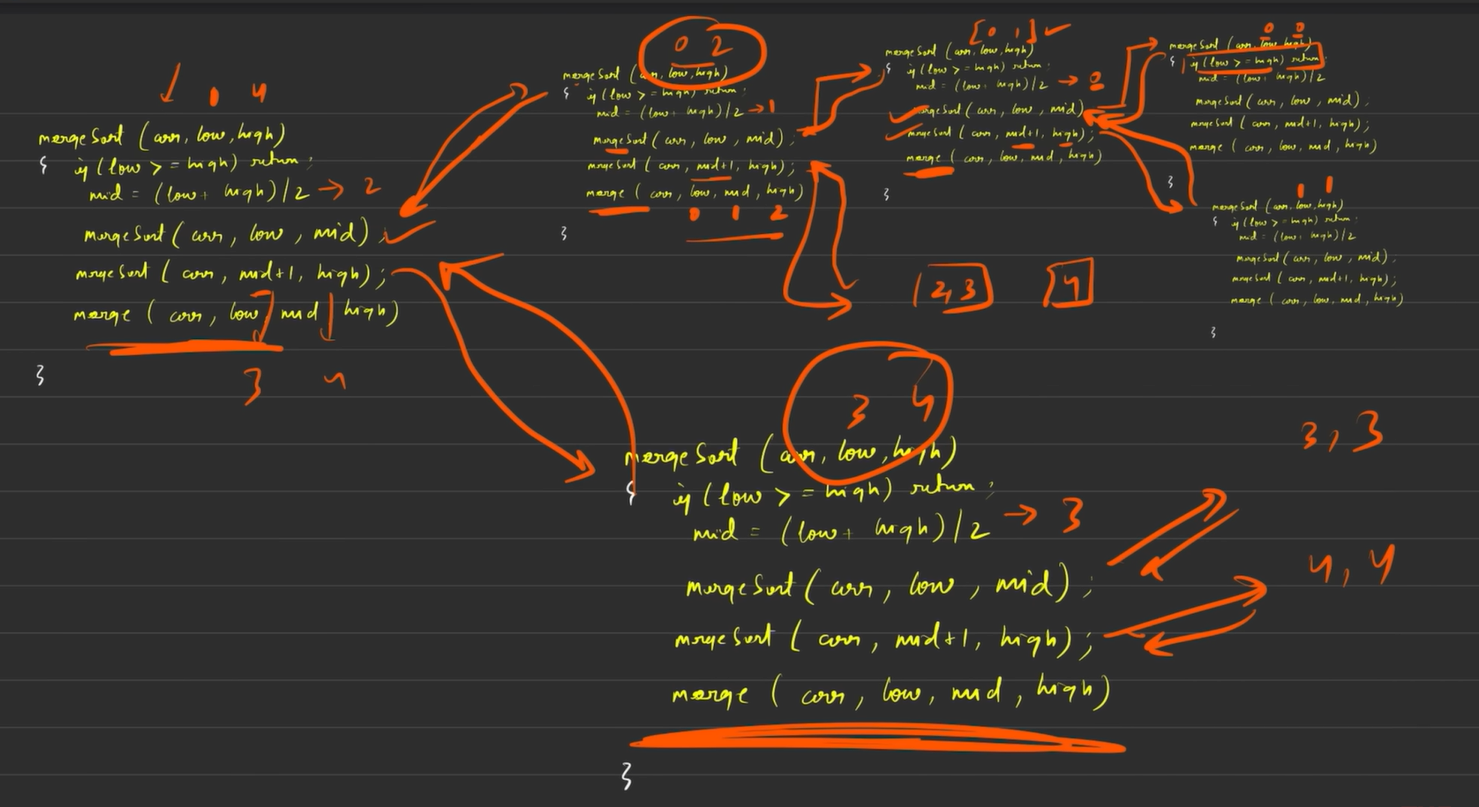 0 4
mergeSort (arr, low, high)
{
if (low >= high) return;
mid = (low + high)/2 → 2
mergeSort (arr, low, mid);
mergeSort (arr, mid+1, high);
merge (arr, low, mid, high)
3 4
}
0 2
mergeSort (arr, low, high)
{
if (low >= high) return;
mid = (low + high)/2 → 1
mergeSort (arr, low, mid);
mergeSort (arr, mid+1, high);
merge (arr, low, mid, high)
0 1 2
}
[0 1]
mergeSort (arr, low, high)
{
if (low >= high) return;
mid = (low + high)/2 → 0
mergeSort (arr, low, mid)
mergeSort (arr, mid+1, high);
merge (arr, low, mid, high)
}
0 0
mergeSort (arr, low, high)
{
if (low >= high) return;
mid = (low + high)/2
mergeSort (arr, low, mid);
mergeSort (arr, mid+1, high);
merge (arr, low, mid, high)
}
1 1
mergeSort (arr, low, high)
{
if (low >= high) return;
mid = (low + high)/2
mergeSort (arr, low, mid);
mergeSort (arr, mid+1, high);
merge (arr, low, mid, high)
}
2,3 4
3 4
mergeSort (arr, low, high)
{
if (low >= high) return;
mid = (low + high)/2 → 3
mergeSort (arr, low, mid);
mergeSort (arr, mid+1, high);
merge (arr, low, mid, high)
}
3, 3
4, 4